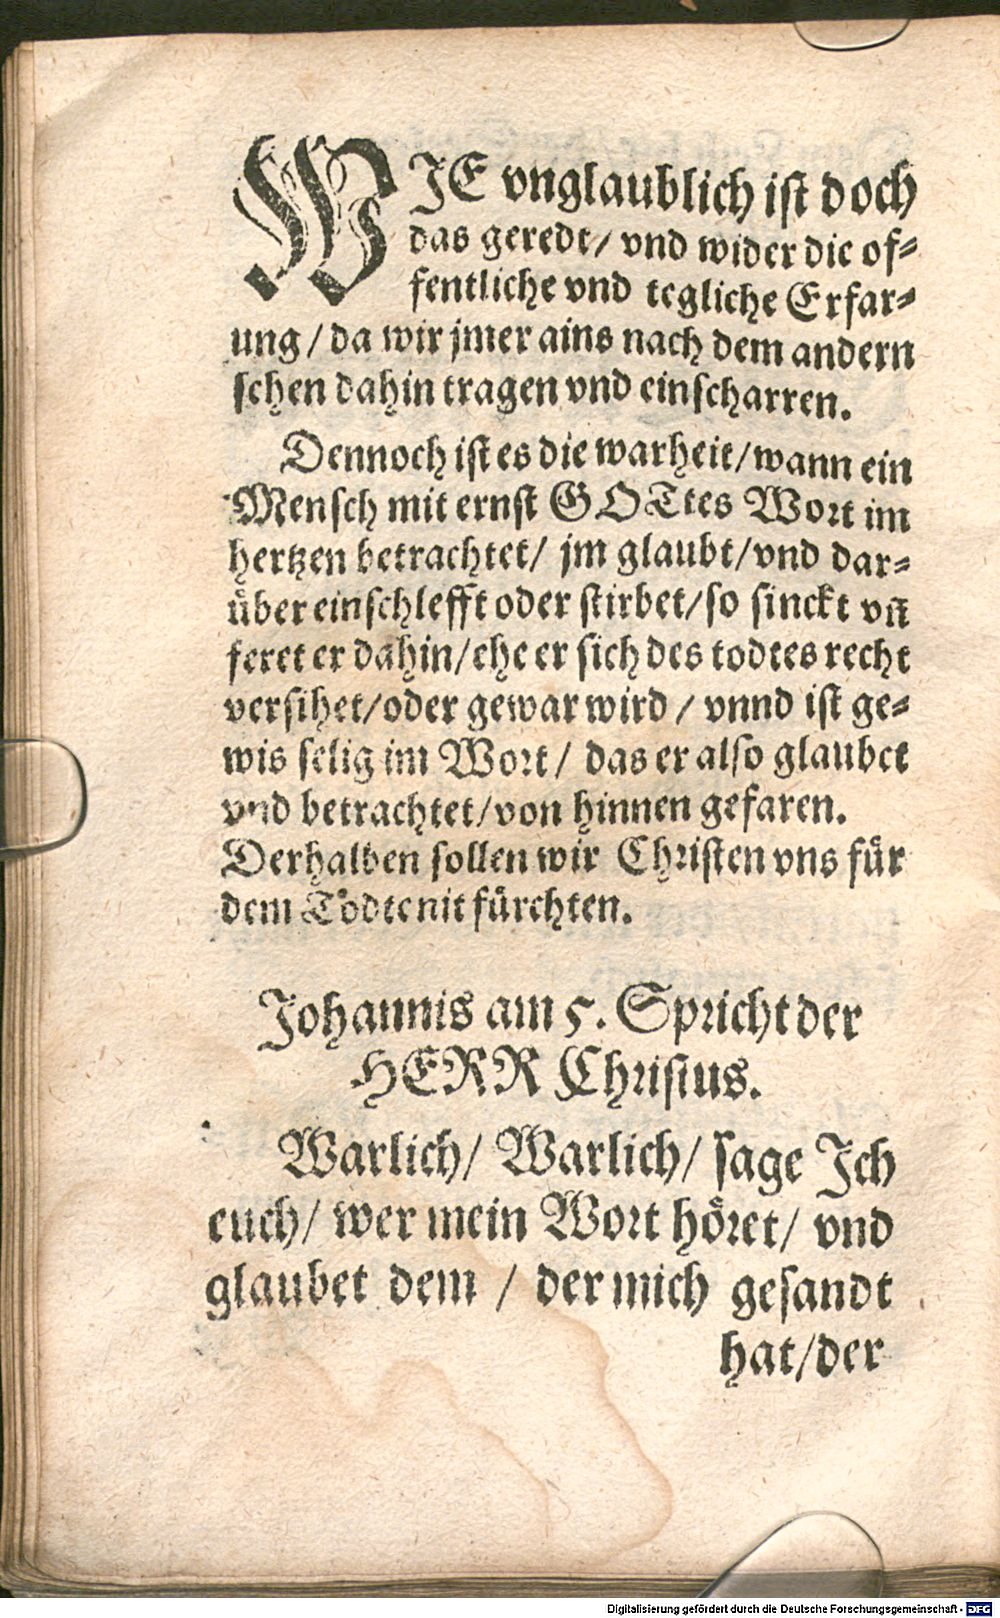 WIE vnglaublich ist doch
das geredt/ vnd wider die of⸗
fentliche vnd tegliche Erfar⸗
ung / da wir jmer ains nach dem andern
sehen dahin tragen vnd einscharren.
Dennoch ist es die warheit/wann ein
Mensch mit ernst GOTtes Wort im
hertzen betrachtet/ jm glaubt/vnd dar⸗
über einschlefft oder stirbet/so sinckt vñ
feret er dahin/ehe er sich des todtes recht
versihet/oder gewar wird / vnnd ist ge⸗
wis selig im Wort / das er also glaubet
vnd betrachtet/von hinnen gefaren.
Derhalben sollen wir Christen vns für
dem Todte nit fürchten.
Johannis am 5. Spricht der
HERR Christus.
Warlich/ Warlich/ sage Ich
euch/ wer mein Wort höret/ vnd
glaubet dem / der mich gesandt
hat/der
Digitalisierung gefördert durch die Deutsche Forschungsgemeinschaft - DFG